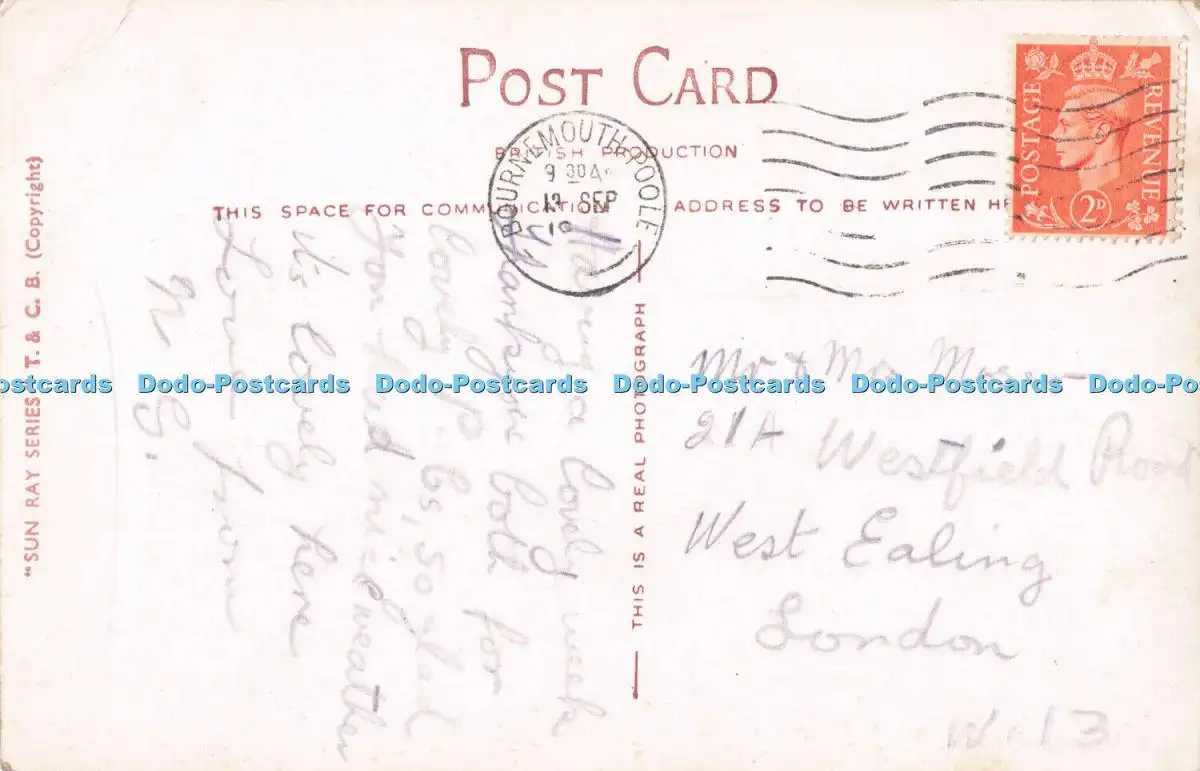 POST CARD
BRITISH PRODUCTION
THIS SPACE FOR COMMUNICATION ADDRESS TO BE WRITTEN HE
BOURNEMOUTH & POOLE
9 30 A
SEP
19
POSTAGE REVENUE
2D
"SUN RAY SERIES" T. & C. B. (Copyright)
THIS IS A REAL PHOTOGRAPH
Having a lovely week
Thanks for both for
lovely P. Cs, so glad
you had nice weather
it's lovely here
Love from
N S.
Mr & Mrs
21A Westfield Road
West Ealing
London
W.13
Dodo-Postcards Dodo-Postcards Dodo-Postcards Dodo-Postcards Dodo-Postcards